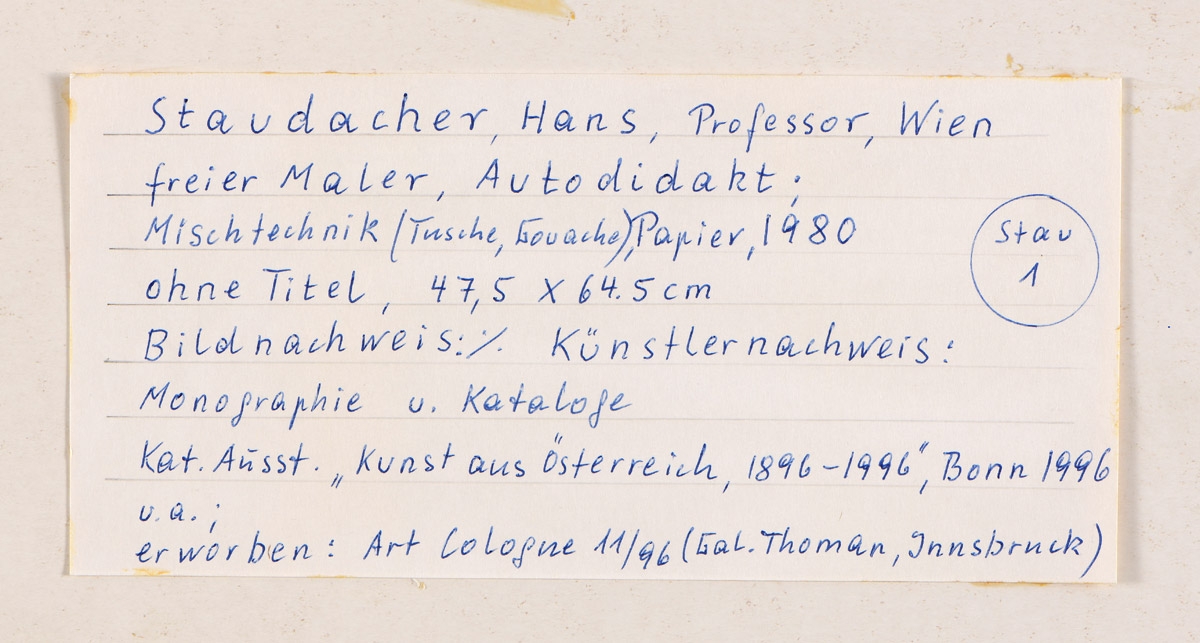 Staudacher, Hans, Professor, Wien
freier Maler, Autodidakt;
Mischtechnik (Tusche, Gouache), Papier, 1980
ohne Titel, 47,5 x 64.5 cm
Bildnachweis: ·/. Künstlernachweis:
Monographie u. Kataloge
Kat. Ausst. „Kunst aus Österreich, 1896-1996", Bonn 1996
u.a.;
erworben: Art Cologne 11/96 (Gal. Thoman, Innsbruck)
Stau
1